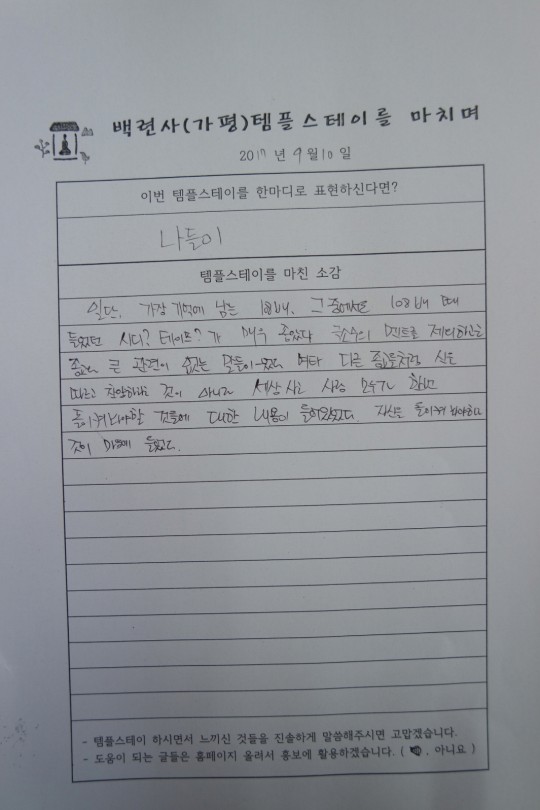 백련사(가평)템플스테이를 마치며
2017 년 9 월 10 일
이번 템플스테이를 한마디로 표현하신다면?
나들이
템플스테이를 마친 소감
일단, 가장 기억에 남는 108배. 그 중에서도 108배 때
들었던 시디? 테이프? 가 매우 좋았다. 극소수의 멘트를 제외하고는
종교와 큰 관련이 없는 말들이었다. 여타 다른 종교들처럼 신을
따르고 찬양하라는 것이 아니라 세상 사는 사람 모두가 한번
돌이켜봐야할 것들에 대한 내용이 들어있었다. 자신을 돌이켜 봐야한다는
것이 마음에 들었다.
- 템플스테이 하시면서 느끼신 것들을 진솔하게 말씀해주시면 고맙겠습니다.
- 도움이 되는 글들은 홈페이지 올려서 홍보에 활용하겠습니다. ( , 아니요 )